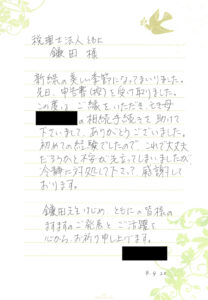 税理士法人ともに
鎌田 様
新緑の美しい季節になってまいりました。
先日、申告書(控)を受け取りました。
この度は ご縁をいただき 亡き母
の相続手続きを 助けて
下さいまして、ありがとうございました。
初めての経験でしたので、これで大丈夫
だろうかと不安が先立ってしまいましたが
冷静に対処して下さって、感謝して
おります。
鎌田先生をはじめ ともにの皆様の
ますますのご発展と ご活躍を
心から お祈り申し上げます。